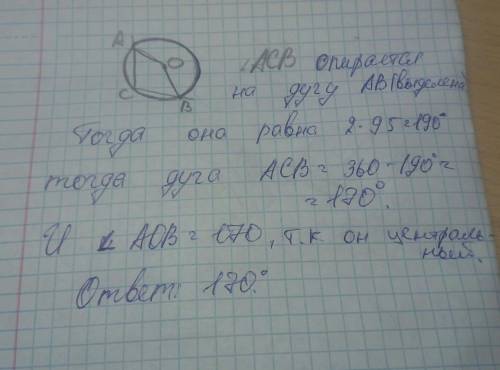 A
O
C
B
∠ACB опирается
на дугу AB (выделена)
Тогда она равна 2·95=190°
тогда дуга ACB = 360-190°=
=170°.
И ∠ AOB = 170, т.к. он централь-
ный.
Ответ: 170.°